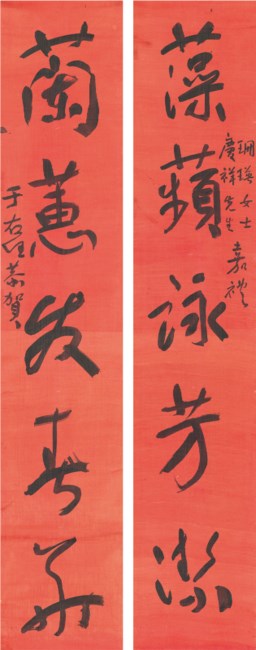 藻蘋詠芳潔
珊瑛女士
慶祥先生
嘉禮
蘭蕙发春華
于右任恭賀